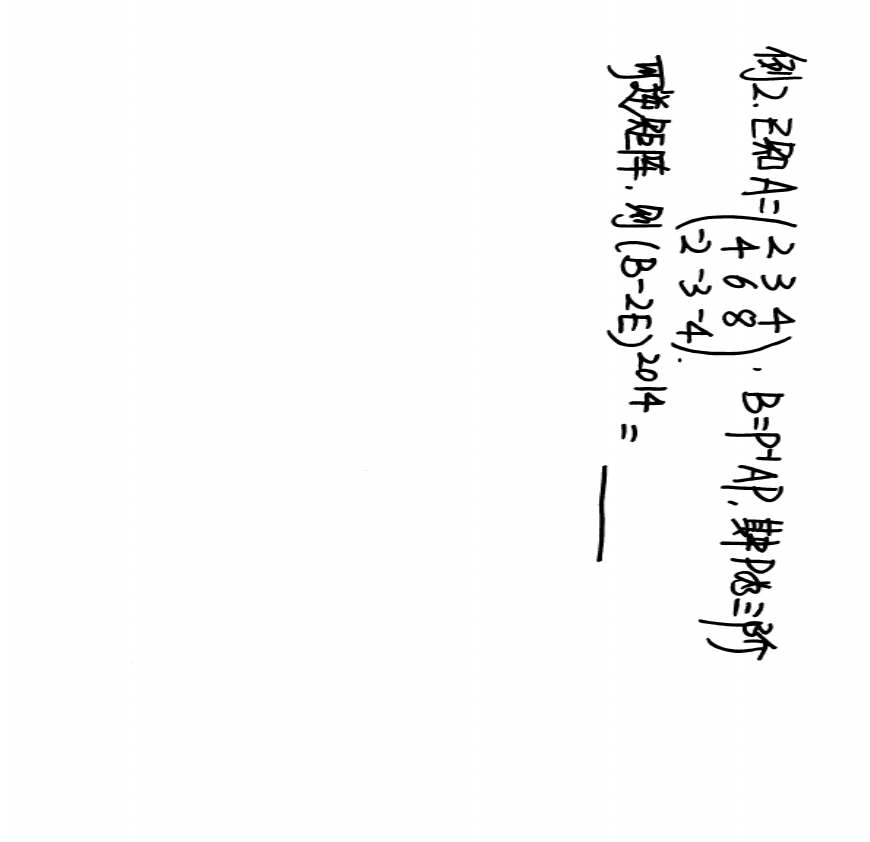 例2. 已知 A=(2 3 4
4 6 8
-2 -3 -4). B=P⁻¹AP, 其中P为三阶
可逆矩阵. 则(B-2E)²⁰¹⁴= ___